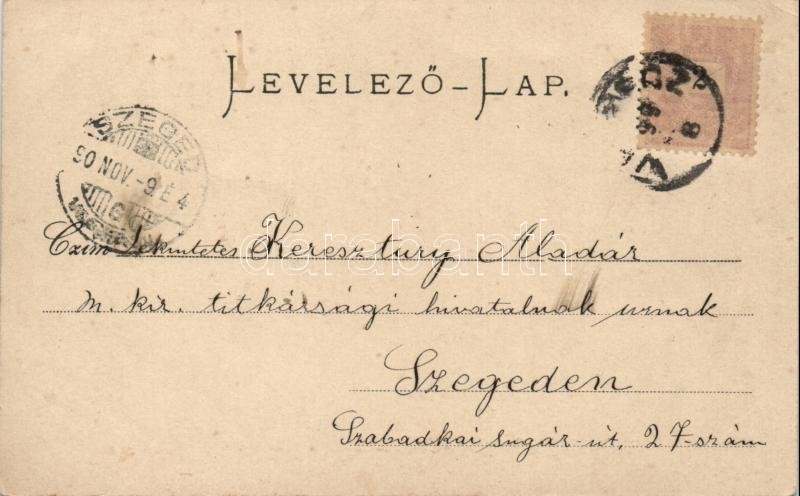 LEVELEZŐ-LAP.
SZEGED
90 NOV.-9.E 4
Czim Tekintetes Keresztury Aladár
darabanth
m. kir. titkársági hivatalnok urnak
Szegeden
Szabadkai sugár-út, 27-szám